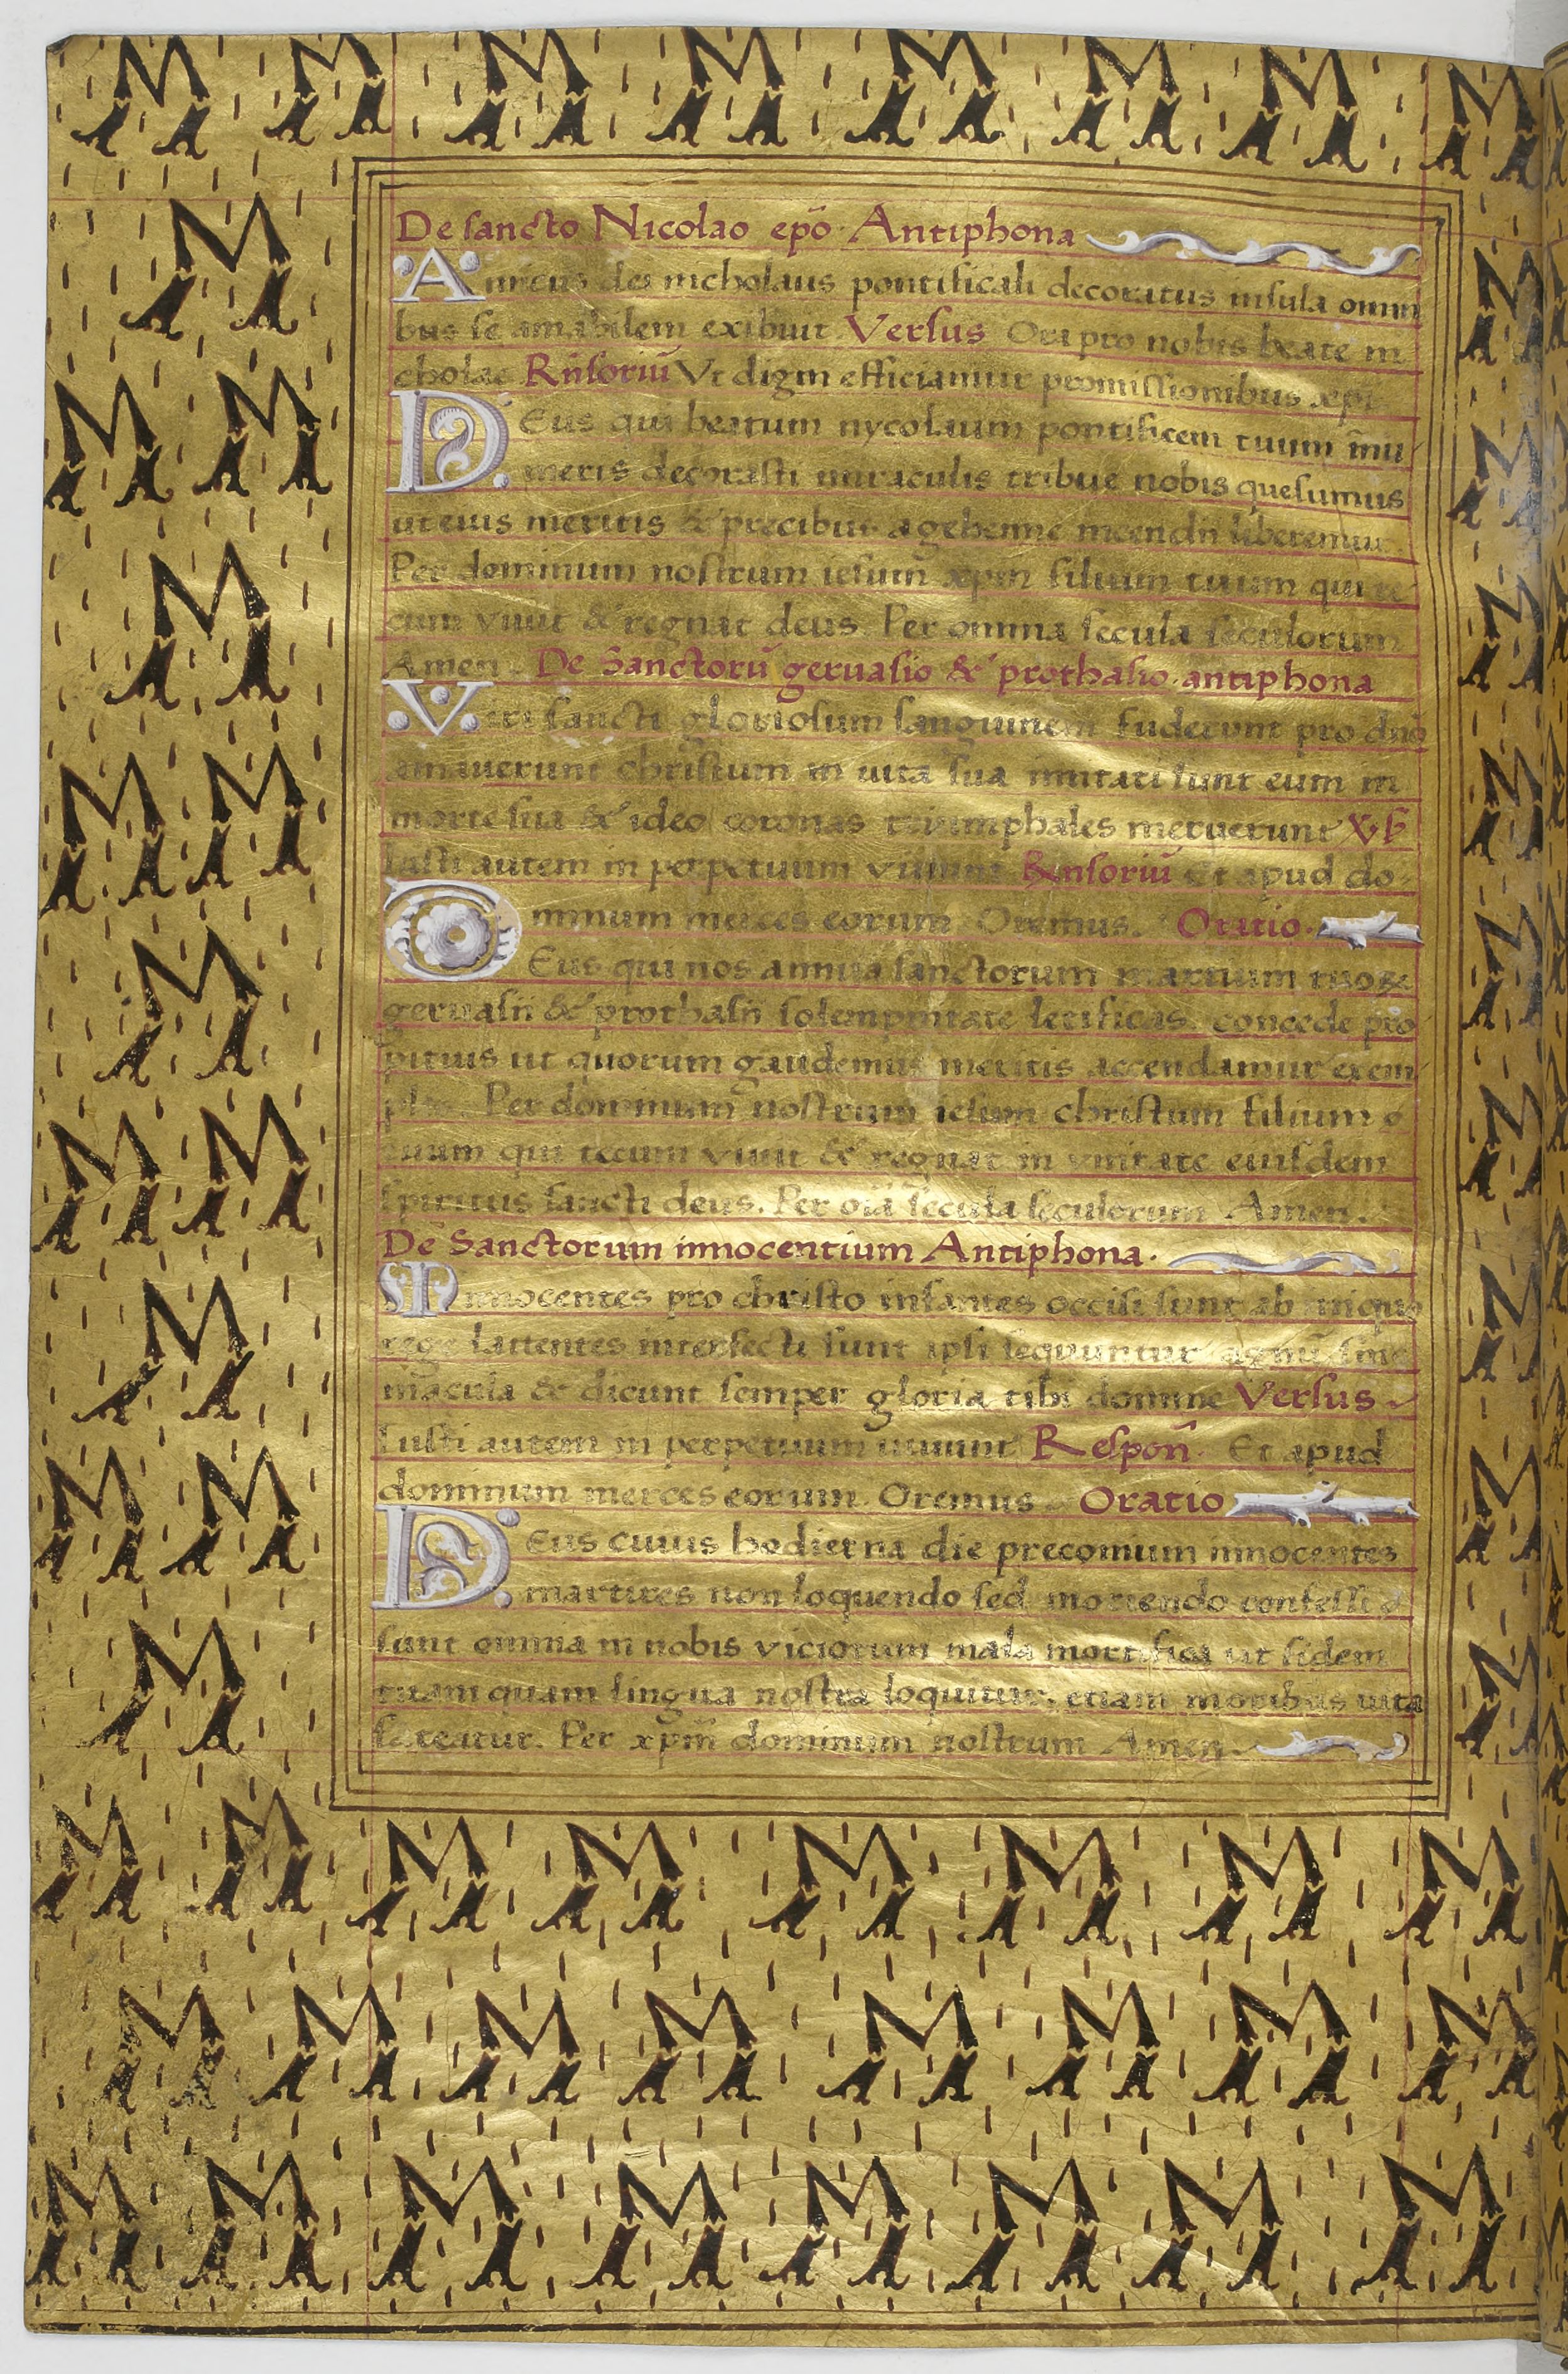 De sancto Nicolao ep̄o. Antiphona
Amicus dei nicholaus pontificali decoratus insula omni
bus se amabilem exibuit. Versus Ora pro nobis beate ni
cholae Rn̄soriū Vt digni efficiamur promissionibus xpi
DEus qui beatum nycolaum pontificem tuum īnu
meris decorasti miraculis tribue nobis quesumus
ut eius meritis & precibus a gehenne incendii liberemur.
Per dominum nostrum iesum xpm filium tuum qui te
cum viuit & regnat deus. Per omnia secula seculorum
Amen. De Sanctorū geruasio & prothasio antiphona
Veri sancti gloriosum sanguinem fuderunt pro dn̄o
amauerunt christum in uita sua imitati sunt eum in
morte sua & ideo coronas triumphales meruerunt
Iusti autem in perpetuum viuunt Rn̄soriū Et apud do-
minum merces eorum. Oremus. Oratio.
DEus qui nos annua sanctorum martium tuoꝝ
geruasii & prothasii solempnitate letificas. concede pro
pitius ut quorum gaudemus meritis accendamur exem
plis. Per dominum nostrum iesum christum filium
tuum qui tecum viuit & regnat in vnitate eiusdem
spiritus sancti deus. Per oīa secula seculorum Amen.
De Sanctorum innocentium Antiphona.
Innocentes pro christo infantes occisi sunt ab iniquo
rege lattentes interfecti sunt ipsi sequuntur agnū sine
macula & dicunt semper gloria tibi domine Versus
Iusti autem in perpetuum uiuunt Respon̄. Et apud
dominum merces eorum. Oremus Oratio
DEus cuius hodierna die preconium innocentes
martires non loquendo sed moriendo confessi
sunt omnia in nobis viciorum mala mortifica ut fidem
tuam quam lingua nostra loquitur, etiam moribus uita
fateatur. Per xpm̄ dominum nostrum Amen